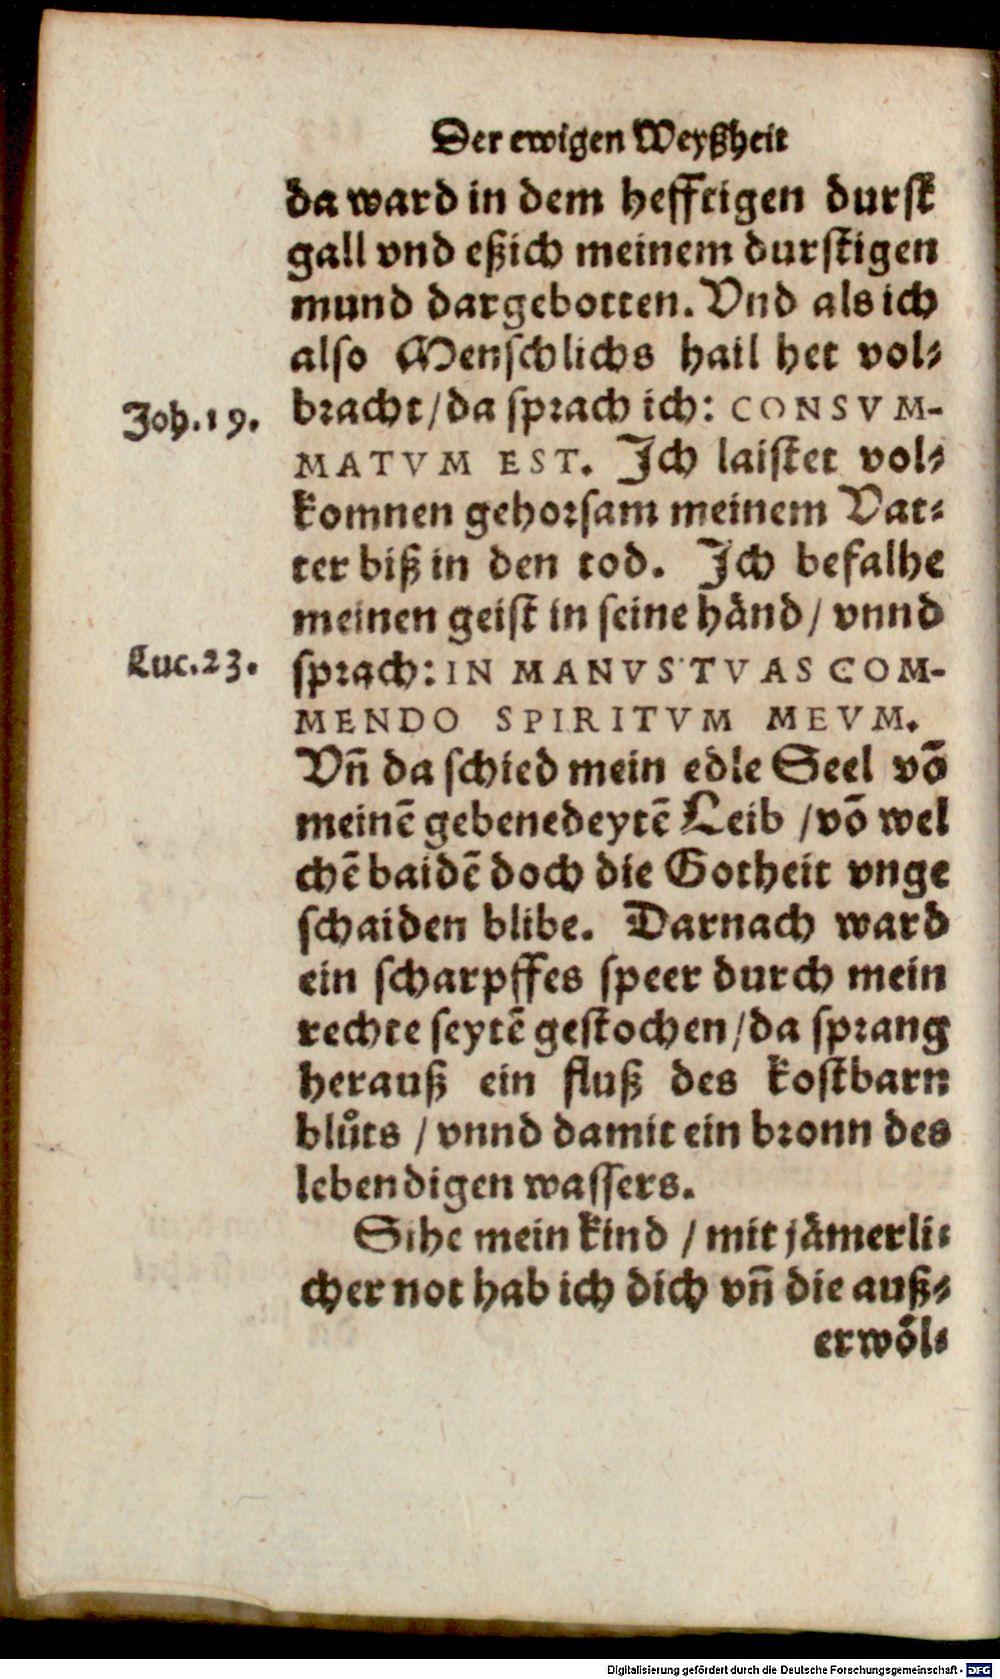 Der ewigen Weyßheit
da ward in dem hefftigen durst
gall vnd eßich meinem durstigen
mund dargebotten. Vnd als ich
also Menschlichs hail het vol⸗
Joh.19.
bracht/da sprach ich: CONSVM-
MATVM EST. Ich laistet vol⸗
komnen gehorsam meinem Vat⸗
ter biß in den tod. Ich befalhe
meinen geist in seine händ/ vnnd
Luc.23.
sprach: IN MANVS TVAS COM-
MENDO SPIRITVM MEVM.
Vñ da schied mein edle Seel võ
meinẽ gebenedeytẽ Leib /võ wel
chẽ baidẽ doch die Gotheit vnge
schaiden blibe. Darnach ward
ein scharpffes speer durch mein
rechte seytẽ gestochen/da sprang
herauß ein fluß des kostbarn
blůts / vnnd damit ein bronn des
lebendigen wassers.
Sihe mein kind / mit jämerli⸗
cher not hab ich dich vñ die auß⸗
erwöl⸗
Digitalisierung gefördert durch die Deutsche Forschungsgemeinschaft - DFG